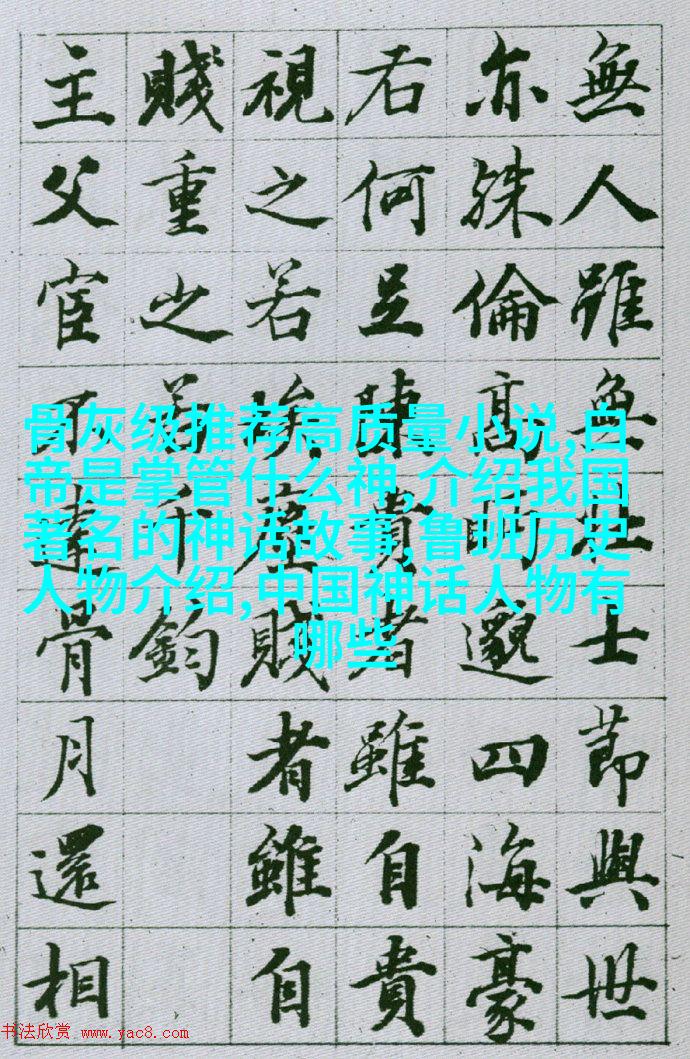 無人雖無壯士節與世
亦殊倫高眄邈四海豪
右何足陳貴者雖自貴
視之若埃塵賤者雖自
賤重之若千鈞
主父宦不達骨月還相
骨灰级推荐高质量小说,白
帝是掌管什么神,介绍我国
著名的神话故事,鲁班历史
人物介绍,中国神话人物有
哪些
书法欣赏 www.yac8.com